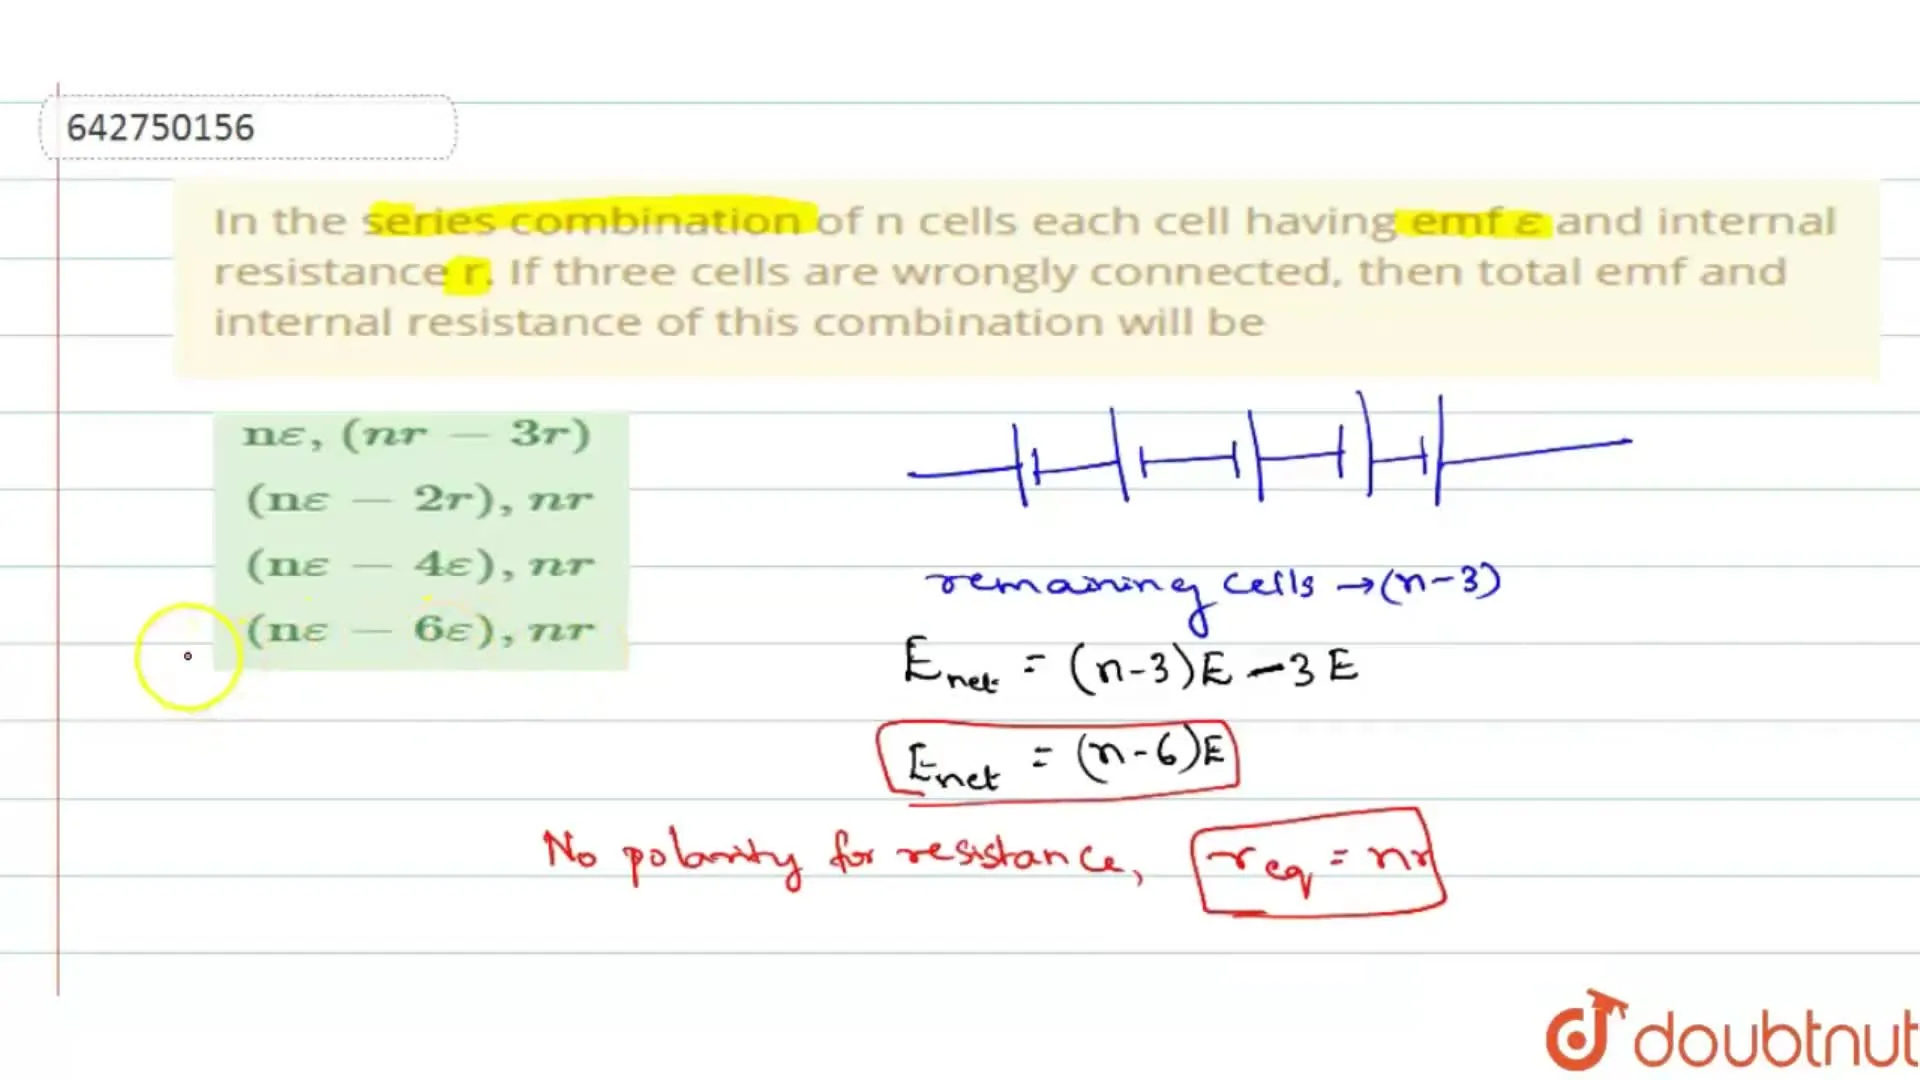 642750156
In the series combination of n cells each cell having emf ε and internal
resistance r. If three cells are wrongly connected, then total emf and
internal resistance of this combination will be
nε, (nr − 3r)
(nε − 2r), nr
(nε − 4ε), nr
(nε − 6ε), nr
remaining cells → (n-3)
Enet = (n-3)E - 3E
Enet = (n-6)E
No polarity for resistance, req = nr
doubtnut